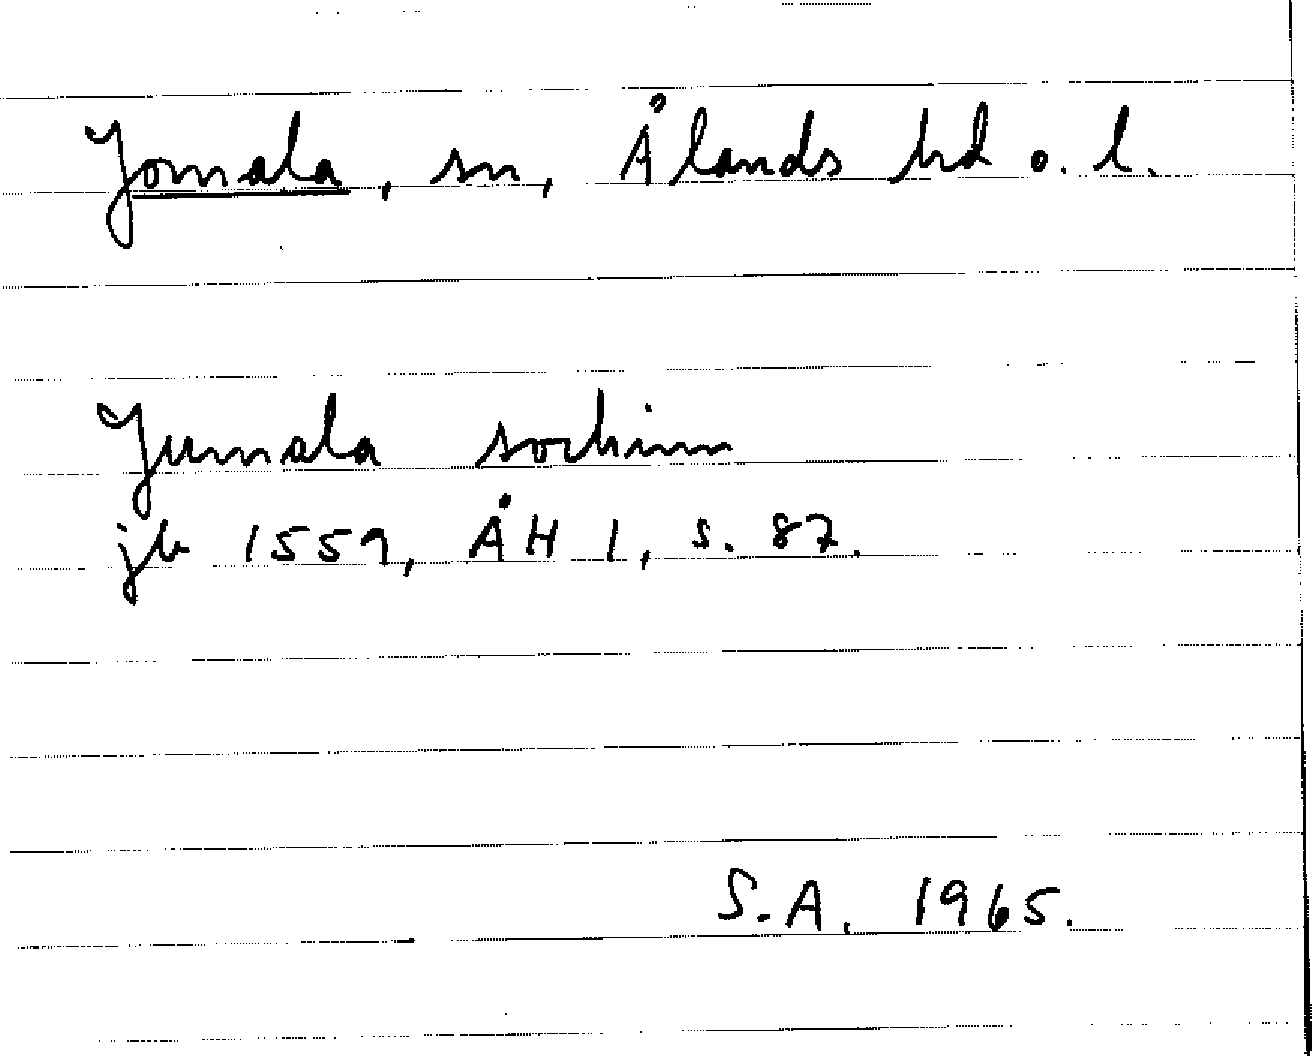 Jomala, sn, Ålands hd o. l.
Jumala sochinn
jb 1559, ÅH 1, s. 87.
S.A. 1965.